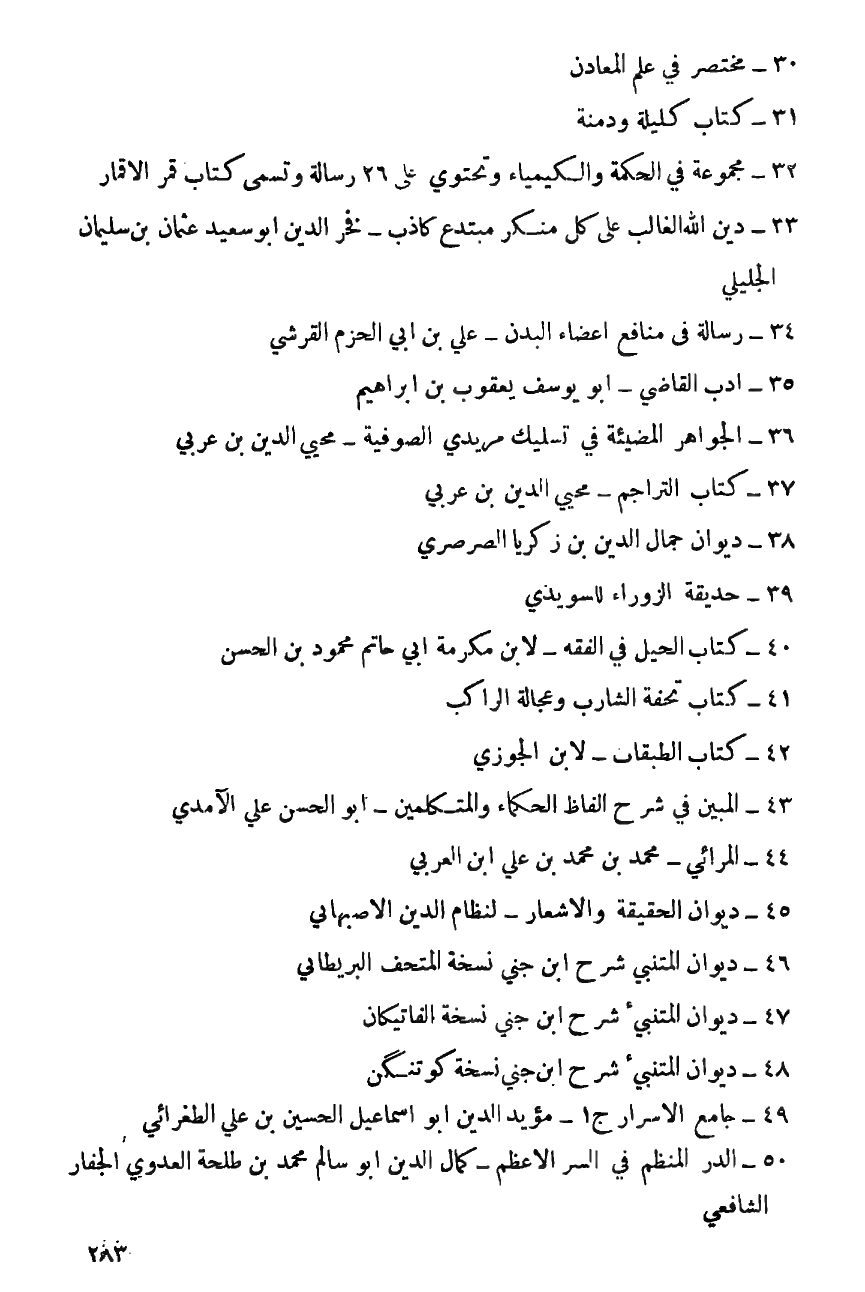 ٣٠ ـ مختصر في علم المعادن
٣١ ـ كتاب كليلة ودمنة
٣٢ ـ مجموعة في الحكمة والكيمياء وتحتوي على ٢٦ رسالة وتسمى كتاب قمر الاقمار
٣٣ ـ دين الله الغالب على كل منكر مبتدع كاذب ـ فخر الدين ابو سعيد عثمان بن سليمان
الجليلي
٣٤ ـ رسالة فى منافع اعضاء البدن ـ علي بن ابي الحزم القرشي
٣٥ ـ ادب القاضي ـ ابو يوسف يعقوب بن ابراهيم
٣٦ ـ الجواهر المضيئة في تسليك مريدي الصوفية ـ محيي الدين بن عربي
٣٧ ـ كتاب التراجم ـ محيي الدين بن عربي
٣٨ ـ ديوان جمال الدين بن زكريا الصرصري
٣٩ ـ حديقة الزوراء للسويدي
٤٠ ـ كتاب الحيل في الفقه ـ لابن مكرمة ابي حاتم محمود بن الحسن
٤١ ـ كتاب تحفة الشارب وعجالة الراكب
٤٢ ـ كتاب الطبقات ـ لابن الجوزي
٤٣ ـ المبين في شرح الفاظ الحكماء والمتكلمين ـ ابو الحسن علي الآمدي
٤٤ ـ المرائي ـ محمد بن محمد بن علي ابن العربي
٤٥ ـ ديوان الحقيقة والاشعار ـ لنظام الدين الاصبهاني
٤٦ ـ ديوان المتنبي شرح ابن جني نسخة المتحف البريطاني
٤٧ ـ ديوان المتنبيء شرح ابن جني نسخة الفاتيكان
٤٨ ـ ديوان المتنبيء شرح ابن جني نسخة كوتنگن
٤٩ ـ جامع الاسرار ج١ ـ مؤيد الدين ابو اسماعيل الحسين بن علي الطغرائي
٥٠ ـ الدر المنظم في السر الاعظم ـ كمال الدين ابو سالم محمد بن طلحة العدوي الجفار
الشافعي
٢٨٣